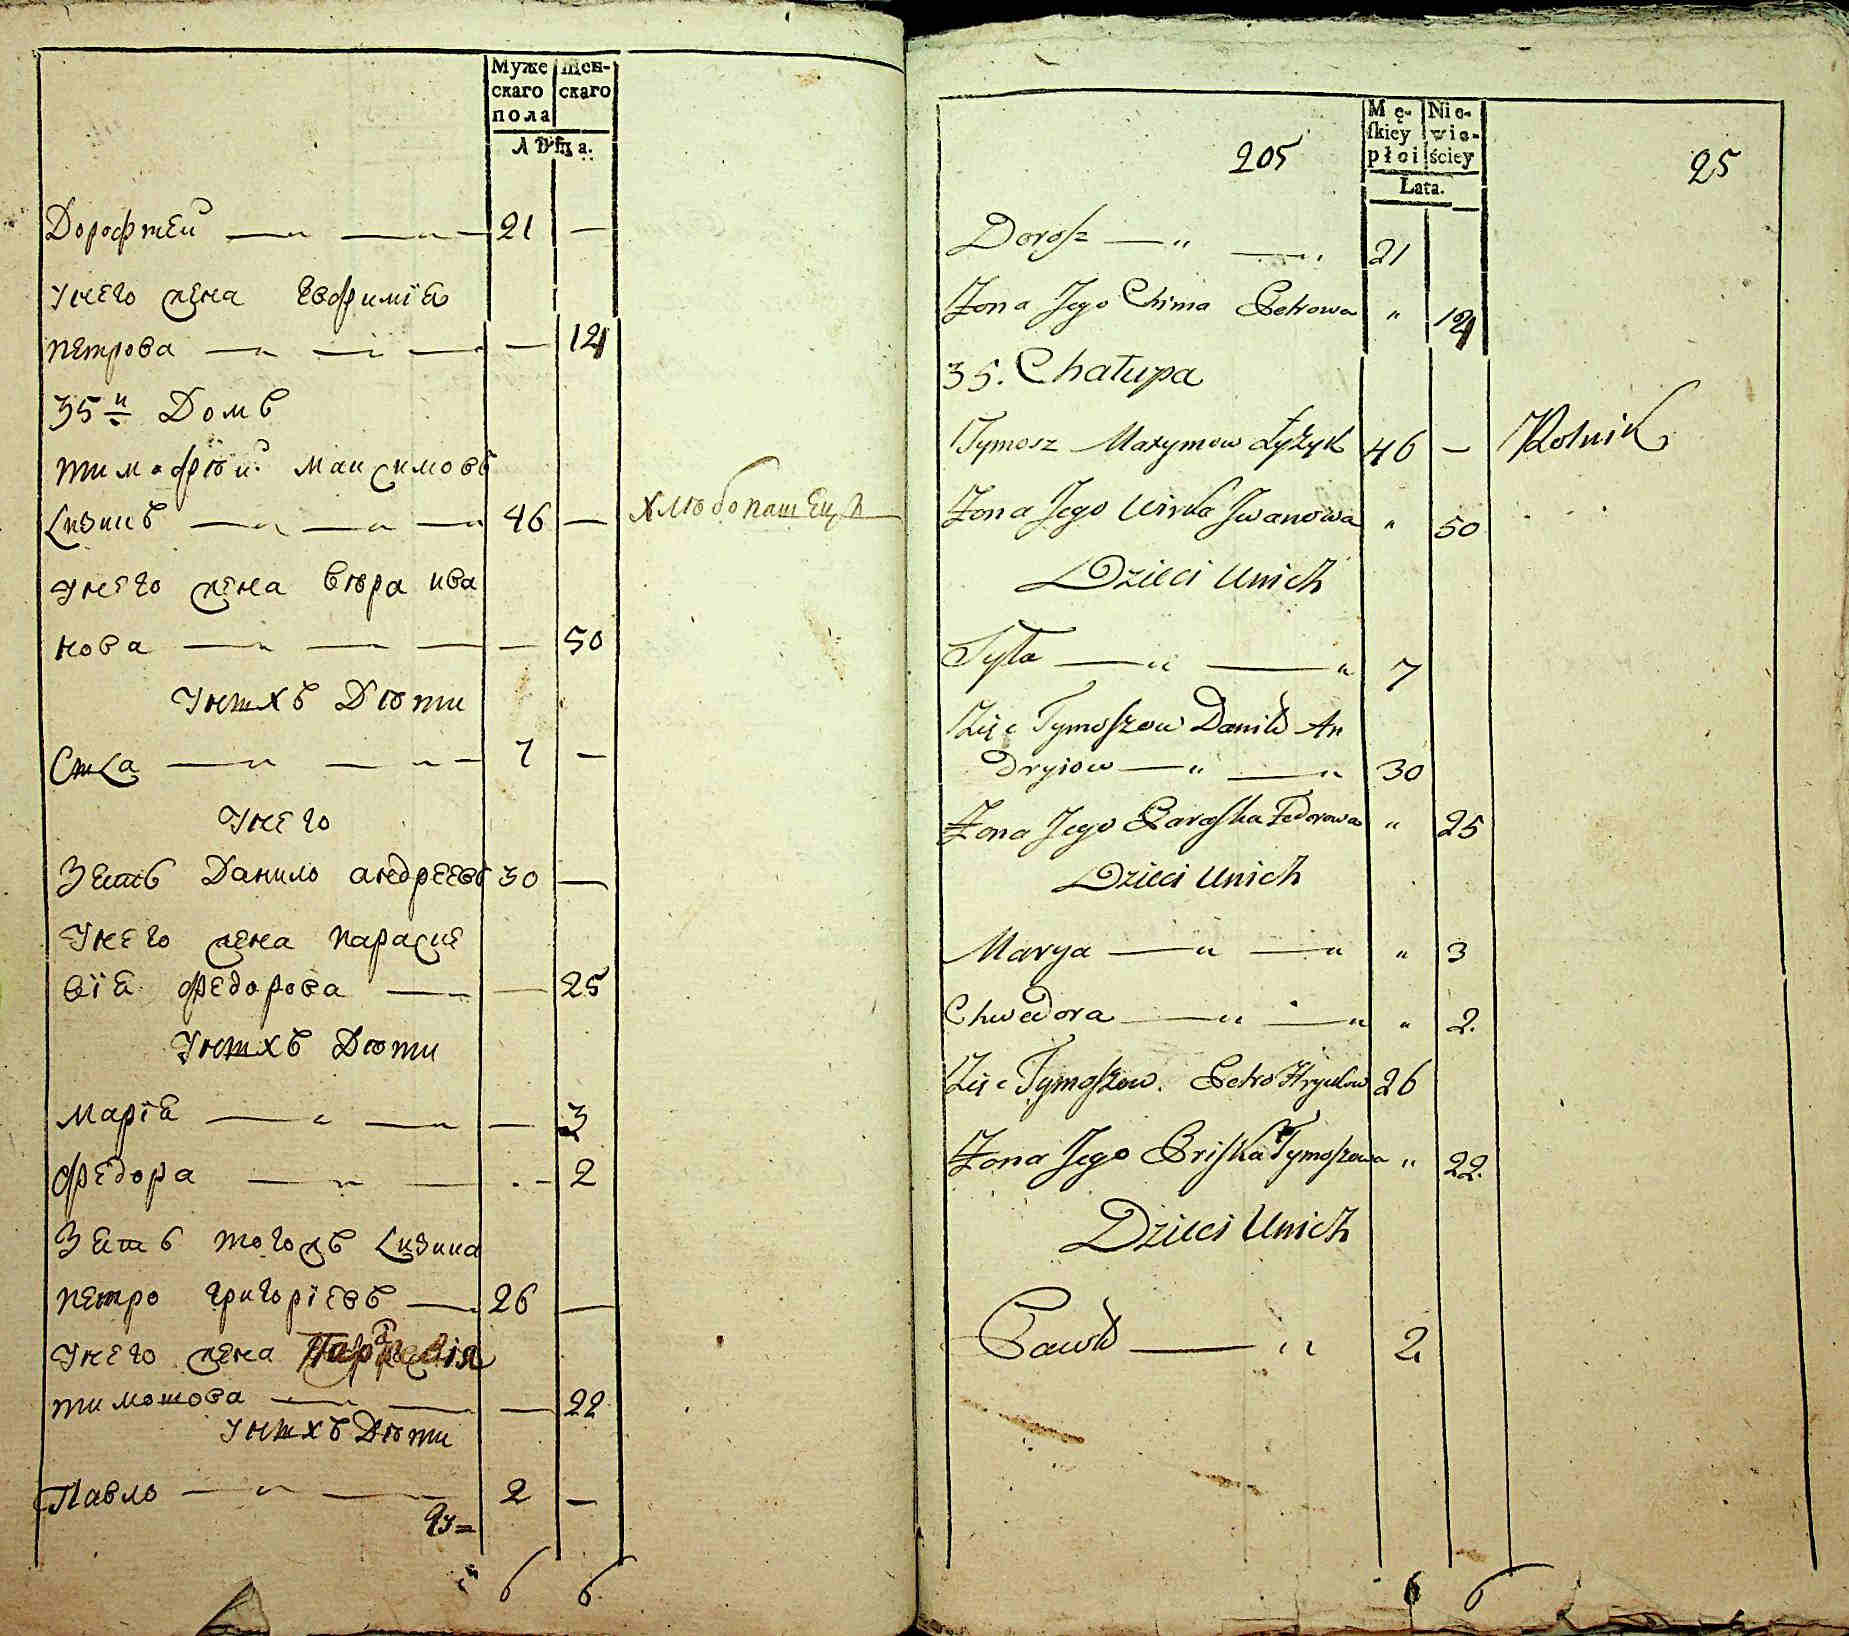 Муже
скаго
пола
жен-
скаго
Лѣта.
Дорофтей — 21 —
Унего жена Евфимїа
Петрова — — 19
35й Домъ
Тимофѣй Максимовъ
Лизикъ — 46 — хлѣбопашецъ
Унего жена Вѣра Ива
нова — — 50
Унтхъ Дѣти
Стла — 7 —
Унего
Зеть Данило Андреевъ 30 —
Унего жена Параске
вїа Федорова — — 25
Унтхъ Дѣти
Марїа — — 3
Федора — — 2
Зеть тогожъ Лизика
Петро Григорїевъ — 26 —
Унего жена
Тимошова — — 22
Унтхъ Дѣти
Павло — 2 —
6 6
205
Mę-
skiey
płci
Nie-
wie-
ściey
Lata.
25
Dorosz — " — " 21
Żona Jego Chima Petrowa " 19
35. Chałupa
Tymosz Maxymow Łyżyk 46 — Rolnik
Żona Jego Wirka Jwanowa " 50
Dzieci Unich
Syła — " — " 7
Zięć Tymoszow Daniło An
dryiow — " — " 30
Żona Jego Paraska Fedorowa " 25
Dzieci Unich
Marya — " — " " 3
Chwedora — " — " " 2.
Zięć Tymoszow. Petro Hrycków 26
Żona Jego Priska Tymoszowa " 22.
Dzieci Unich
Pawło — " 2
6 6